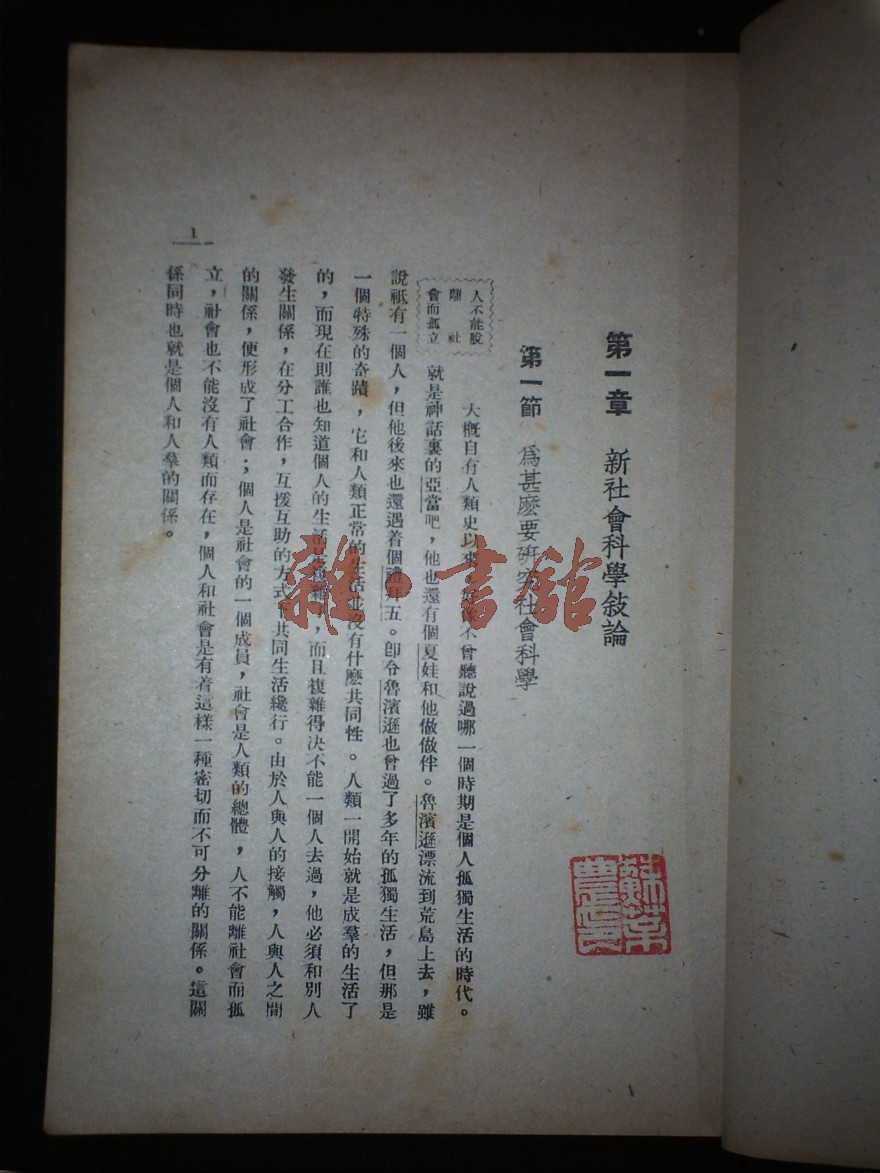 第一章 新社會科學敍論
第一節 爲甚麽要研究社會科學
人不能脫
離社
會而孤立
大概自有人類史以來,不曾聽說過哪一個時期是個人孤獨生活的時代。
就是神話裏的亞當吧,他也還有個夏娃和他做做伴。魯濱遜漂流到荒島上去,雖
說祇有一個人,但他後來也還遇着個禮拜五。卽令魯濱遜也曾過了多年的孤獨生活,但那是
一個特殊的奇蹟,它和人類正常的生活並沒有什麽共同性。人類一開始就是成羣的生活了
的,而現在則誰也知道個人的生活,而且複雜得決不能一個人去過,他必須和別人
發生關係,在分工合作,互援互助的方式下共同生活纔行。由於人與人的接觸,人與人之間
的關係,便形成了社會;個人是社會的一個成員,社會是人類的總體,人不能離社會而孤
立,社會也不能沒有人類而存在,個人和社會是有着這樣一種密切而不可分離的關係。這關
係同時也就是個人和人羣的關係。
1
雜·書館